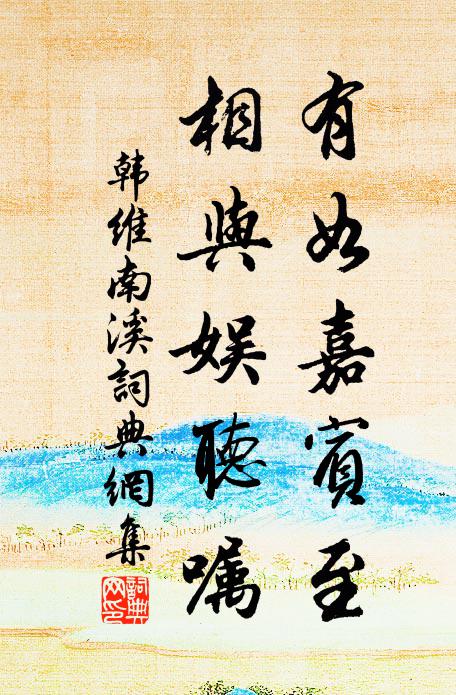 有如嘉賓至
相與娛聽嘱
韩維南溪詞典網集
詞典